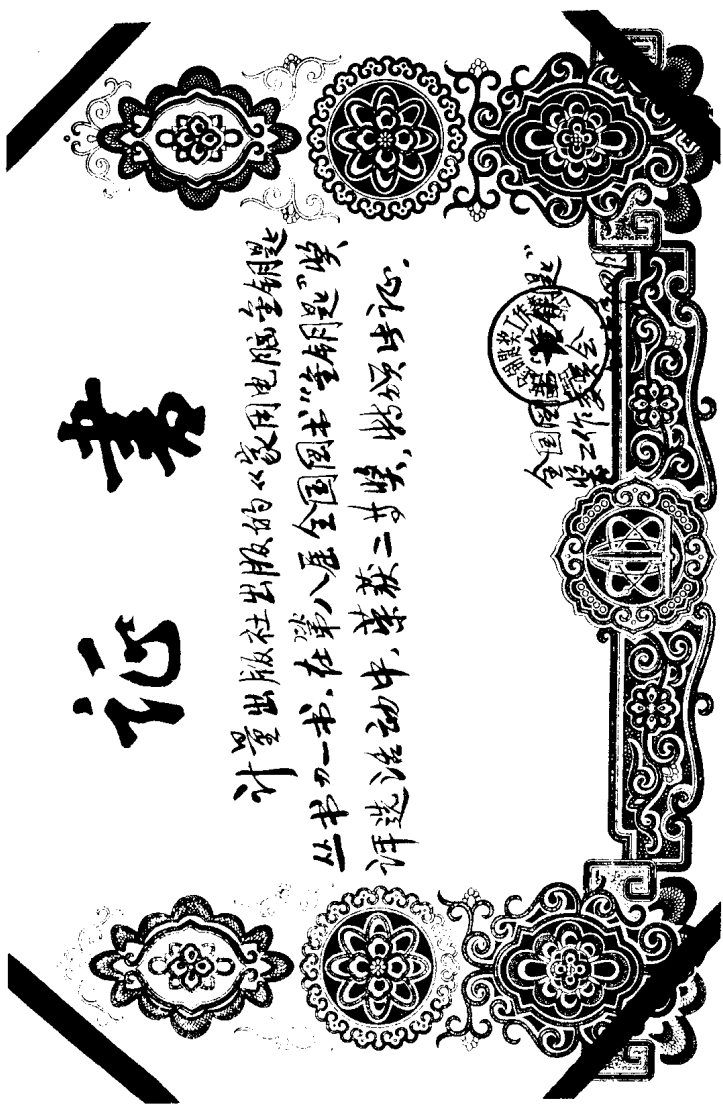 证书
计量出版社出版的《家用电脑金钥匙
丛书》一书，在第八届全国图书“金钥匙”奖
评选活动中，荣获二等奖，特颁此证。
全国图书“金钥匙”
奖工作委员会